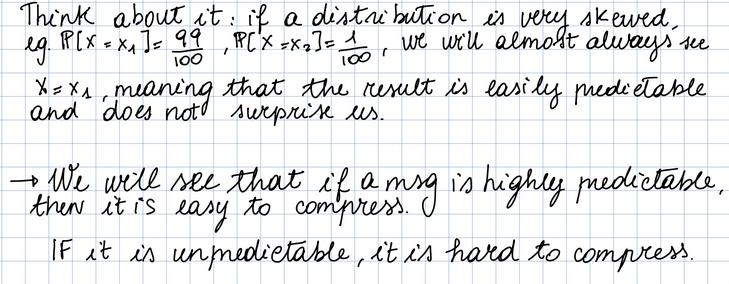 Think about it: if a distribution is very skewed,
eg. ℙ[X = x₁] = 99/100, ℙ[X = x₂] = 1/100, we will almost always see
X = x₁, meaning that the result is easily predictable
and does not surprise us.
→ We will see that if a msg is highly predictable,
then it is easy to compress.
IF it is unpredictable, it is hard to compress.